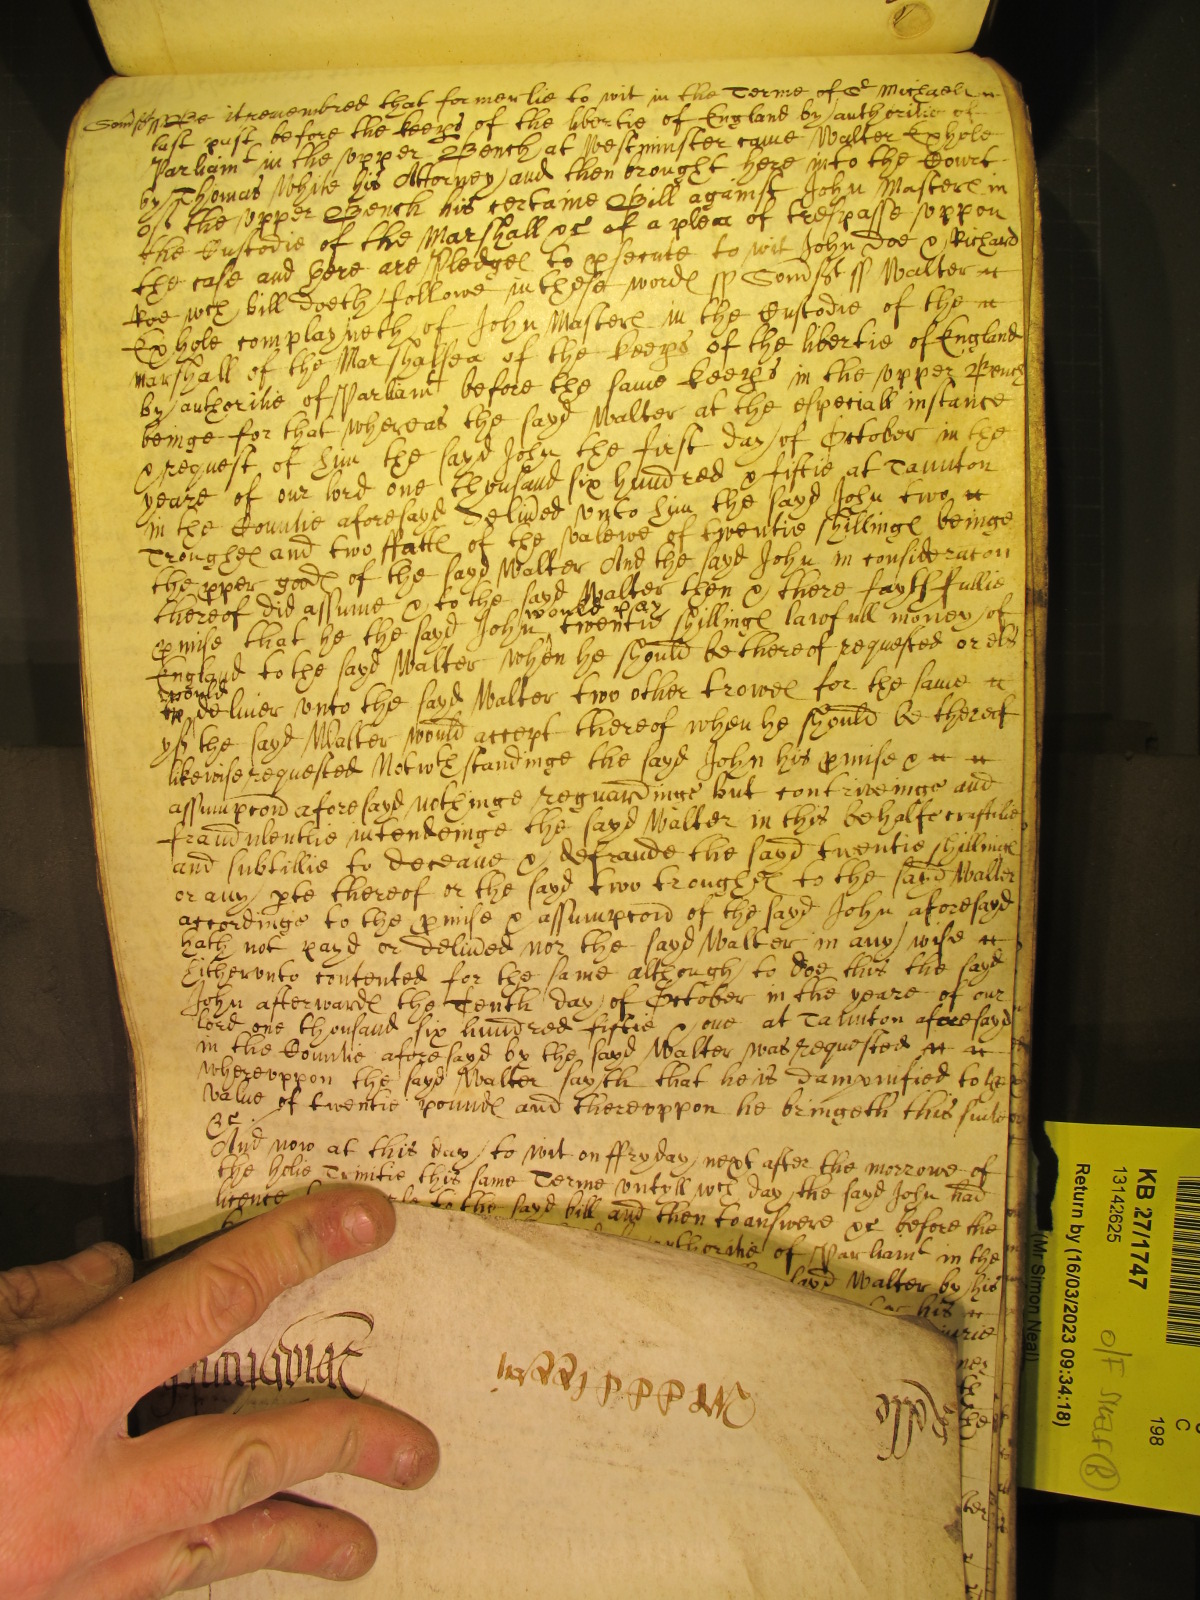 Somst ss Be it remembred that formerlie to wit in the Terme of St Michaell
last past before the keeps of the libertie of England by authoritie of
Parliamt in the upper Bench at Westminster came Walter Exhole
by Thomas White his Attorney and then brought here into the Court
of the upper Bench his certaine Bill against John Masters in
the Custodie of the Marshall &c of a plea of trespasse uppon
the case and here are Pledges to psecute to wit John Doe & Richard
Roe wch bill doeth followe in these words ss Somst ss Walter
Exhole complayneth of John Masters in the Custodie of the
marshall of the Marshalsea of the keeps of the libertie of England
by authoritie of Parliamt before the same keeps in the upper Bench
beinge for that whereas the sayd Walter at the especiall instance
& request of him the sayd John the first day of October in the
yeare of our lord one thousand six hundred & fiftie at Taunton
in the Countie aforesayd delived unto him the sayd John two
Troughes and two ffatts of the valewe of twentie shillings beinge
the pper goods of the sayd Walter And the sayd John in consideracon
thereof did assume & to the sayd Walter then & there faythfullie
pmise that he the sayd John would pay twentie shillings lawfull money of
England to the sayd Walter when he should be thereof requested or els
would deliver unto the sayd Walter two other trowes for the same
yf the sayd Walter would accept thereof when he should be thereof
likewise requested Notwthstandinge the sayd John his pmise &
assumpcon aforesayd nothinge reguardinge but contriveinge and
fraudulentlie intendeinge the sayd Walter in this behalfe craftilie
and subtillie to deceave & defraude the sayd twentie shillings
or any pte thereof or the sayd two troughes to the sayd Walter
accordinge to the pmise & assumpcon of the sayd John aforesayd
hath not payd or delived nor the sayd Walter in any wise
hitherunto contented for the same although to doe this the sayd
John afterwards the Tenth day of October in the yeare of our
lord one thousand six hundred fiftie & one at Taunton aforesayd
in the Countie aforesayd by the sayd Walter was requested
whereuppon the sayd Walter sayth that he is dampnified to the
value of twentie pounds and thereuppon he bringeth this suite
&c
And now at this day to wit on ffryday next after the morrowe of
the holie Trinitie this same Terme untyll wch day the sayd John had
licence to the sayd bill and then to answere &c before the
authoritie of Parliamt in the
sayd Walter by his
his
Rolle
KB 27/1747
13142625
Return by (16/03/2023 09:34:18)
(Mr Simon Neal)
198
C